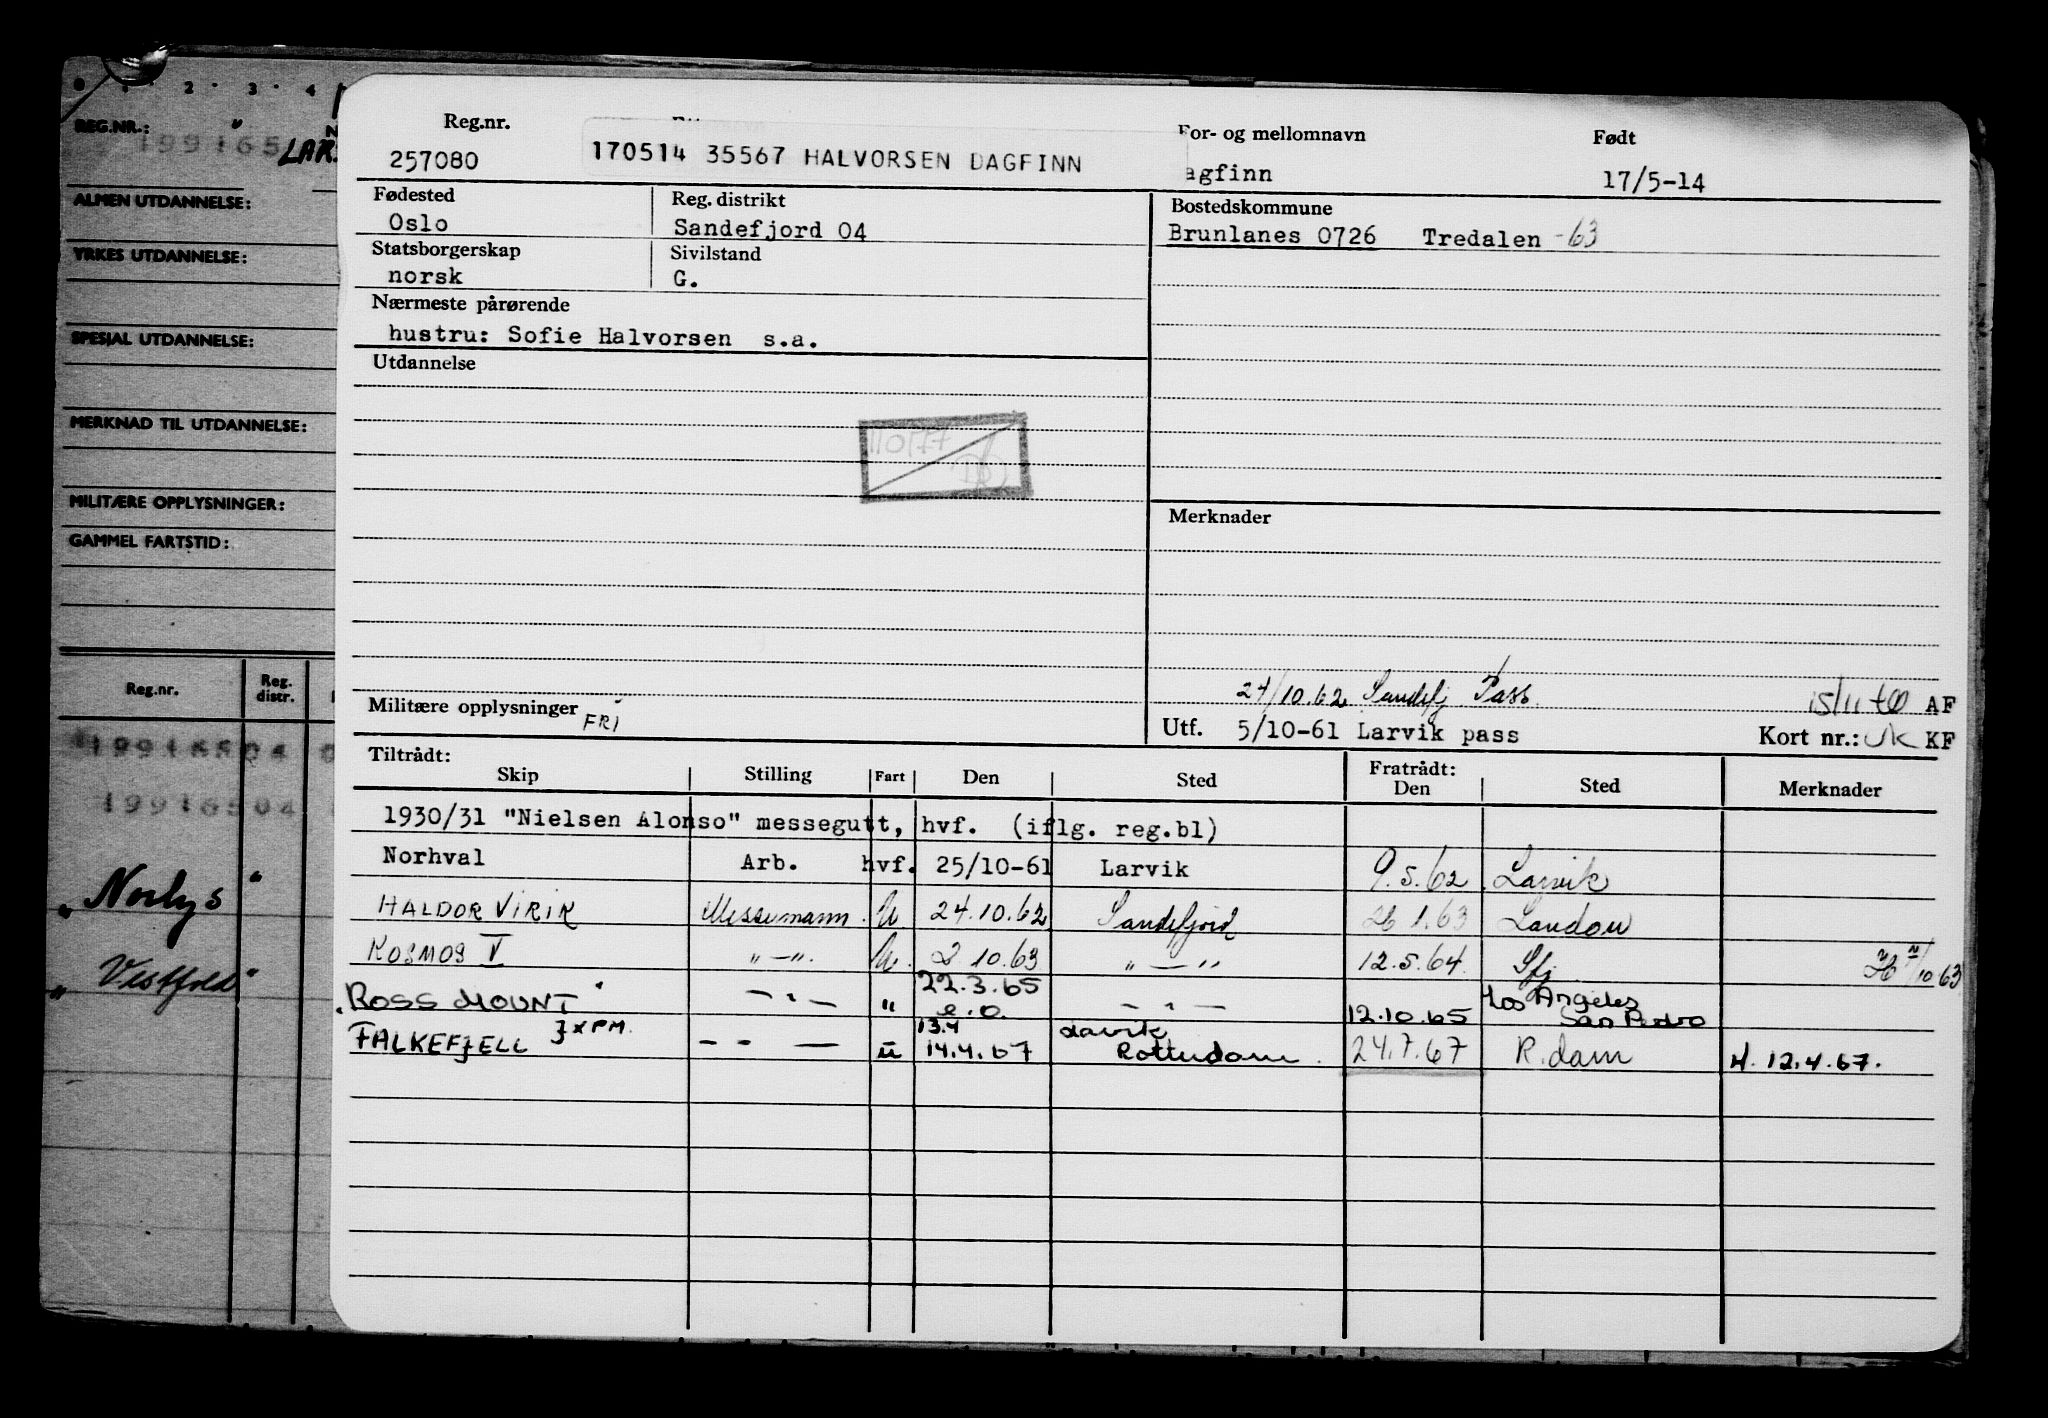 0 1 2 3 4
REG.NR.:
199165
LARS
ALMEN UTDANNELSE:
YRKES UTDANNELSE:
SPESJAL UTDANNELSE:
MERKNAD TIL UTDANNELSE:
MILITÆRE OPPLYSNINGER:
GAMMEL FARTSTID:
Reg.nr. Reg. distr.
19916504
19916504
"Norlys"
"Vestfold"
Reg.nr. For- og mellomnavn Født
257080 170514 35567 HALVORSEN DAGFINN agfinn 17/5-14
Fødested Reg. distrikt Bostedskommune
Oslo Sandefjord 04 Brunlanes 0726 Tredalen -63
Statsborgerskap Sivilstand
norsk G.
Nærmeste pårørende
hustru: Sofie Halvorsen s.a.
Utdannelse
Merknader
24/10.62 Sandefj Pass AF
Militære opplysninger FRI Utf. 5/10-61 Larvik pass Kort nr.: UK KF
Tiltrådt: Fratrådt:
Skip Stilling Fart Den Sted Den Sted Merknader
1930/31 "Nielsen Alonso" messegutt, hvf. (iflg. reg.bl)
Norhval Arb. hvf. 25/10-61 Larvik 9.5.62 Larvik
HALDOR VIRIK Messemann U 24.10.62 Sandefjord 26 1.63 London
KOSMOS V " — " U. 2 10.63 " — " 12.5.64 Sfj
22.3.65 Los Angeles
ROSS MOUNT — " — " e.o. — " — 12.10.65 San Pedro
13.4 Larvik
FALKEFJELL } x PM. — - — u 14.4.67 Rotterdam 24.7.67 R.dam H. 12.4.67.